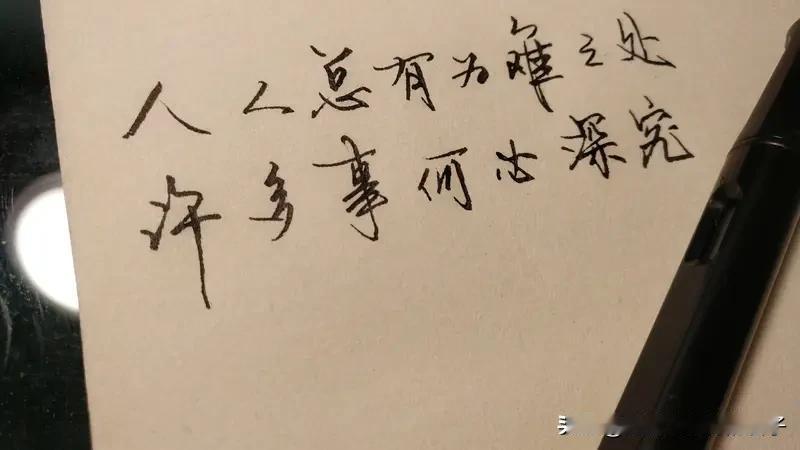 人人总有为难之处
许多事何必深究